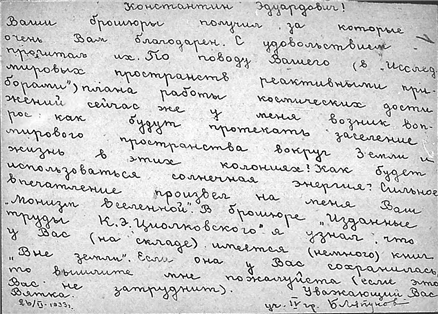 Константин Эдуардович!
Ваши брошюры получил за которые
очень Вам благодарен. С удовольствием
прочитал их. По поводу Вашего (в „Исслед.
мировых пространств реактивными при-
борами“) плана работы космических дости
жений сейчас же у меня возник воп-
рос как будут протекать заселение
мирового пространства вокруг Земли и
жизнь в этих колониях? Как будет
использоваться солнечная энергия? Сильное
впечатление произвел на меня Ваш
„Монизм вселенной“. В брошюре „Изданные
труды К.Э. Циолковского“ я узнал, что
у Вас (на складе) имеется (немного) книг
„Вне земли“. Если она у Вас сохранилась,
то вышлите мне пожалуйста (если это
Вас не затруднит). Уважающий Вас
Вятка. уч. IV гр. Б. Ляпунов